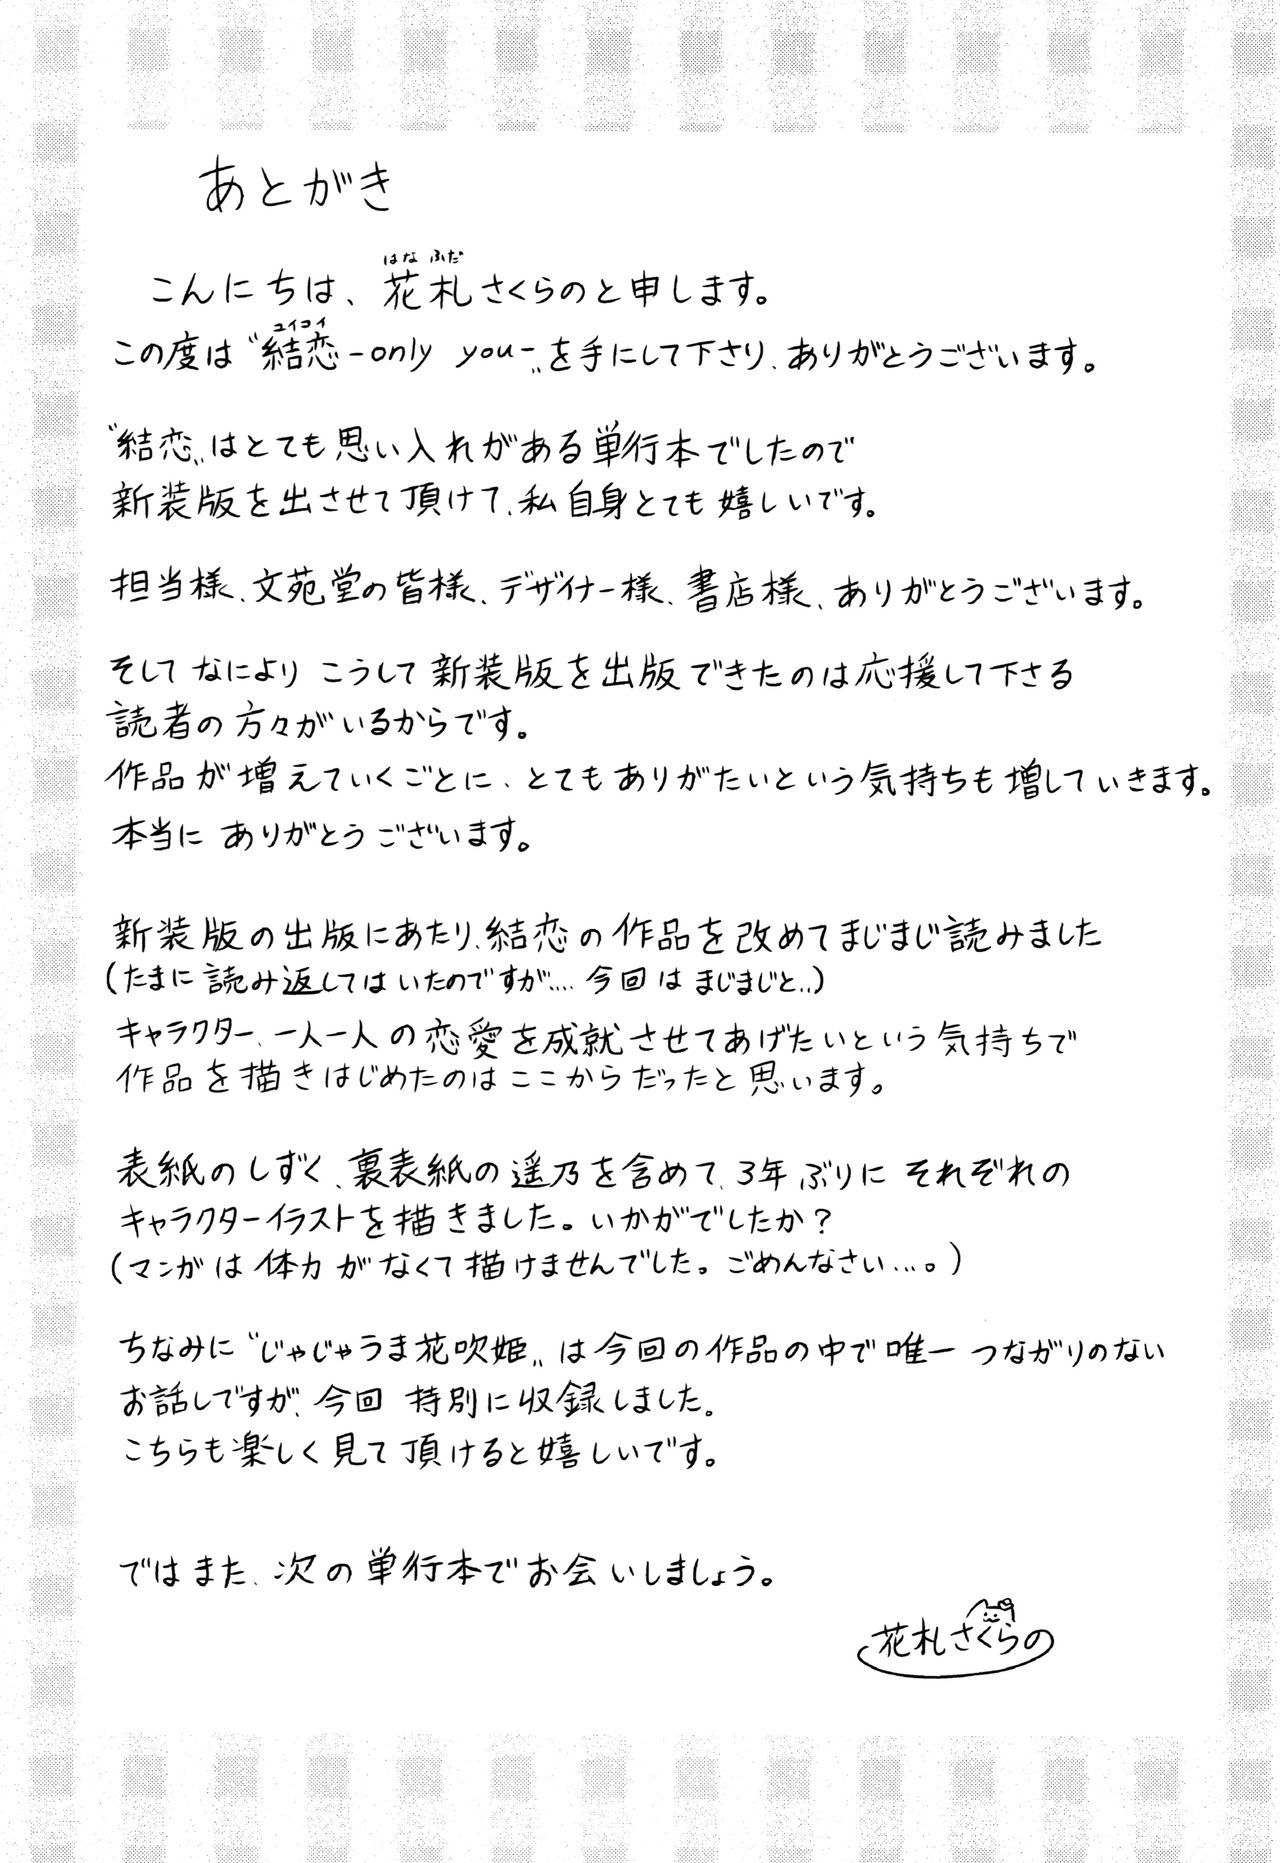 あとがき
はな ふだ
こんにちは、花札さくらのと申します。
ユイコイ
この度は〝結恋-only you-〟を手にして下さり、ありがとうございます。
〝結恋〟はとても思い入れがある単行本でしたので
新装版を出させて頂けて、私自身とても嬉しいです。
担当様、文苑堂の皆様、デザイナー様、書店様、ありがとうございます。
そしてなにより こうして新装版を出版できたのは応援して下さる
読者の方々がいるからです。
作品が増えていくごとに、とてもありがたいという気持ちも増していきます。
本当に ありがとうございます。
新装版の出版にあたり、結恋の作品を改めてまじまじ読みました
(たまに読み返してはいたのですが.... 今回は まじまじと..)
キャラクター、一人一人の恋愛を成就させてあげたいという気持ちで
作品を描きはじめたのはここからだったと思います。
表紙のしずく、裏表紙の遥乃を含めて、3年ぶりに それぞれの
キャラクターイラストを描きました。いかがでしたか?
(マンガは体力がなくて描けませんでした。ごめんなさい...。)
ちなみに〝じゃじゃうま花吹姫〟は今回の作品の中で唯一 つながりのない
お話しですが、今回 特別に収録しました。
こちらも楽しく見て頂けると嬉しいです。
ではまた、次の単行本でお会いしましょう。
花札さくらの